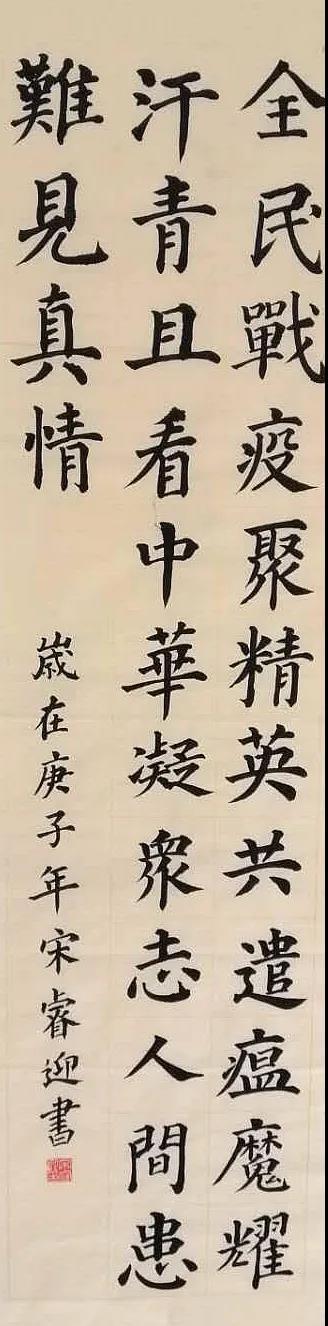 全民戰疫聚精英共遣瘟魔耀
汗青且看中華凝衆志人間患
難見真情
歲在庚子年宋睿迎書